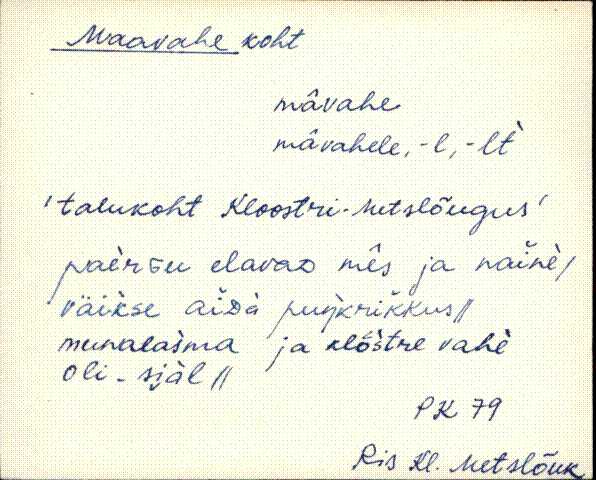 Maavahe koht
mâvahe
mâvahele, -l, -lt̀
'talukoht Kloostri-Metslõugus'
elavaᴅ mês ja nainè/
väikse aiᴅà
munalasma ja klôstre vahè
oli- sįàl //
PK 79
Ris Kl. Metslõuk